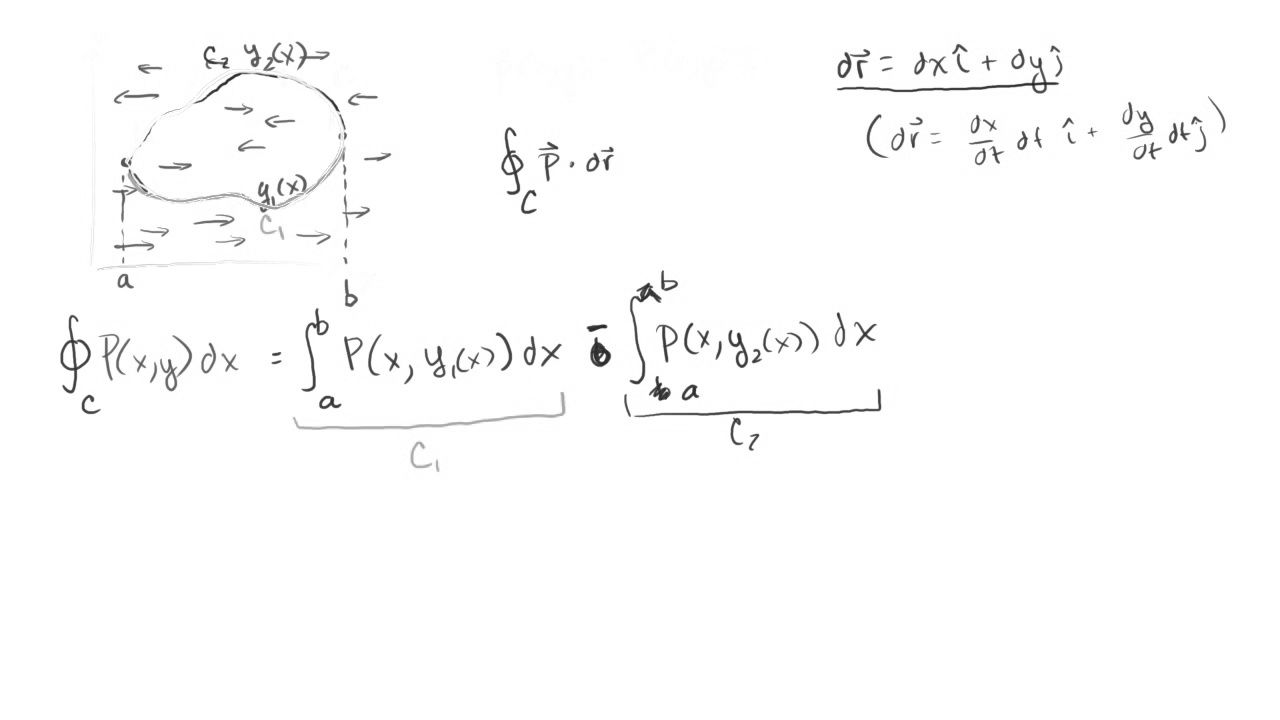 C₂ y₂(x)
y₁(x)
C₁
a
b
∮_C P⃗ · dr⃗
dr⃗ = dx î + dy ĵ
(dr⃗ = dx/dt dt î + dy/dt dt ĵ)
∮_C P(x,y) dx = ∫_a^b P(x, y₁(x)) dx - ∫_a^b P(x, y₂(x)) dx
C₁
C₂